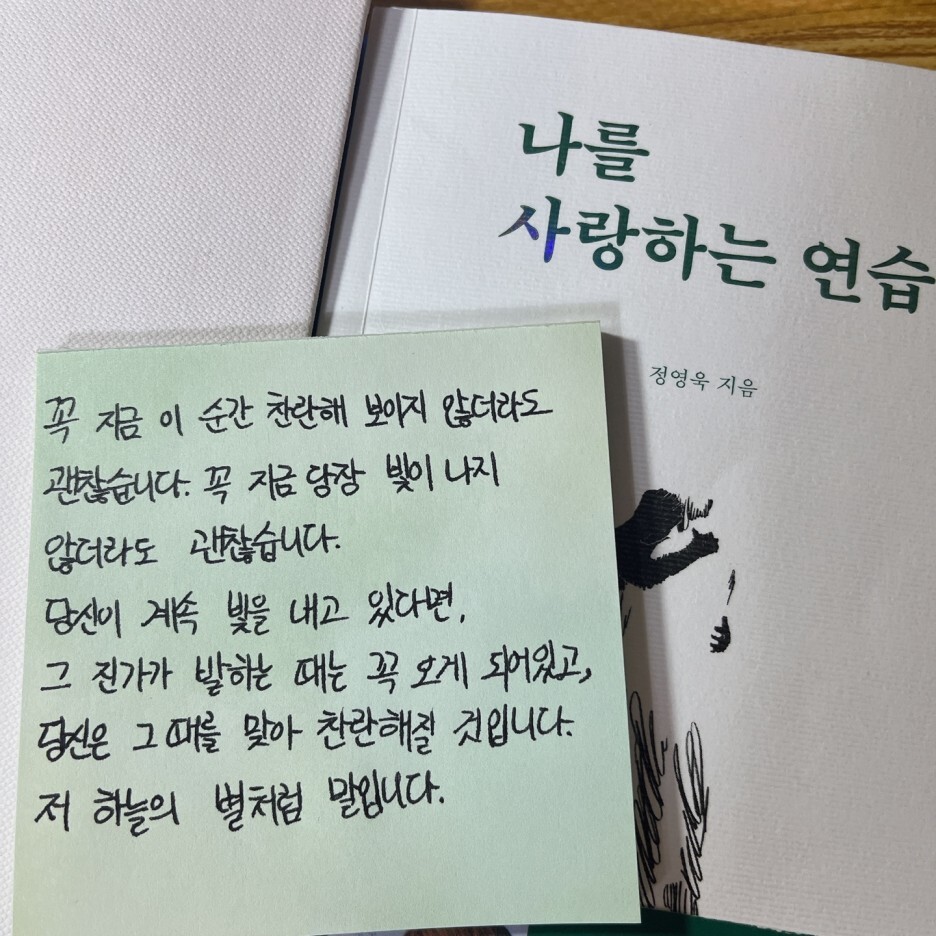 나를
사랑하는 연습
정영욱 지음
꼭 지금 이 순간 찬란해 보이지 않더라도
괜찮습니다. 꼭 지금 당장 빛이 나지
않더라도 괜찮습니다.
당신이 계속 빛을 내고 있다면,
그 진가가 발하는 때는 꼭 오게 되어있고,
당신은 그 때를 맞아 찬란해질 것입니다.
저 하늘의 별처럼 말입니다.